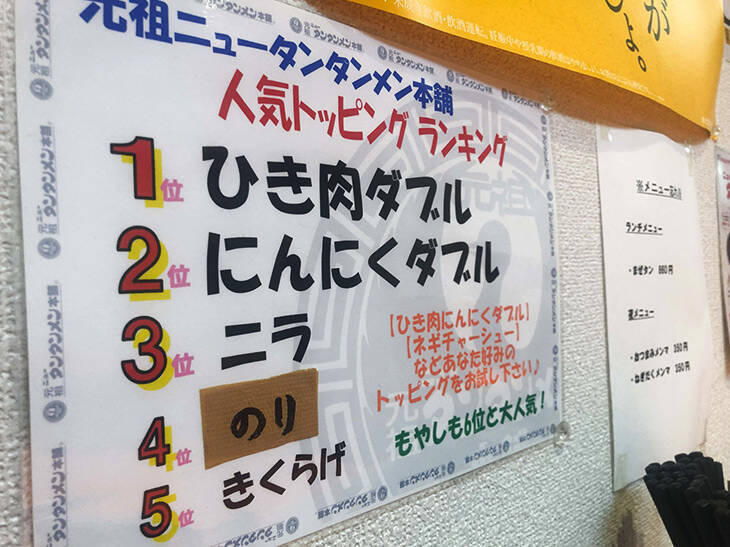 元祖ニュータンタンメン本舗
人気トッピング ランキング
1位 ひき肉ダブル
2位 にんにくダブル
3位 ニラ
4位 のり
5位 きくらげ
【ひき肉にんにくダブル】
【ネギチャーシュー】
などあなた好みの
トッピングをお試し下さい♪
もやしも6位と大人気！
が
しょう。
ランチメニュー
・まぜタン 860円
・おつまみメンマ 350円
・ねぎだくメンマ 350円
元祖 ニュー タンタンメン本舗